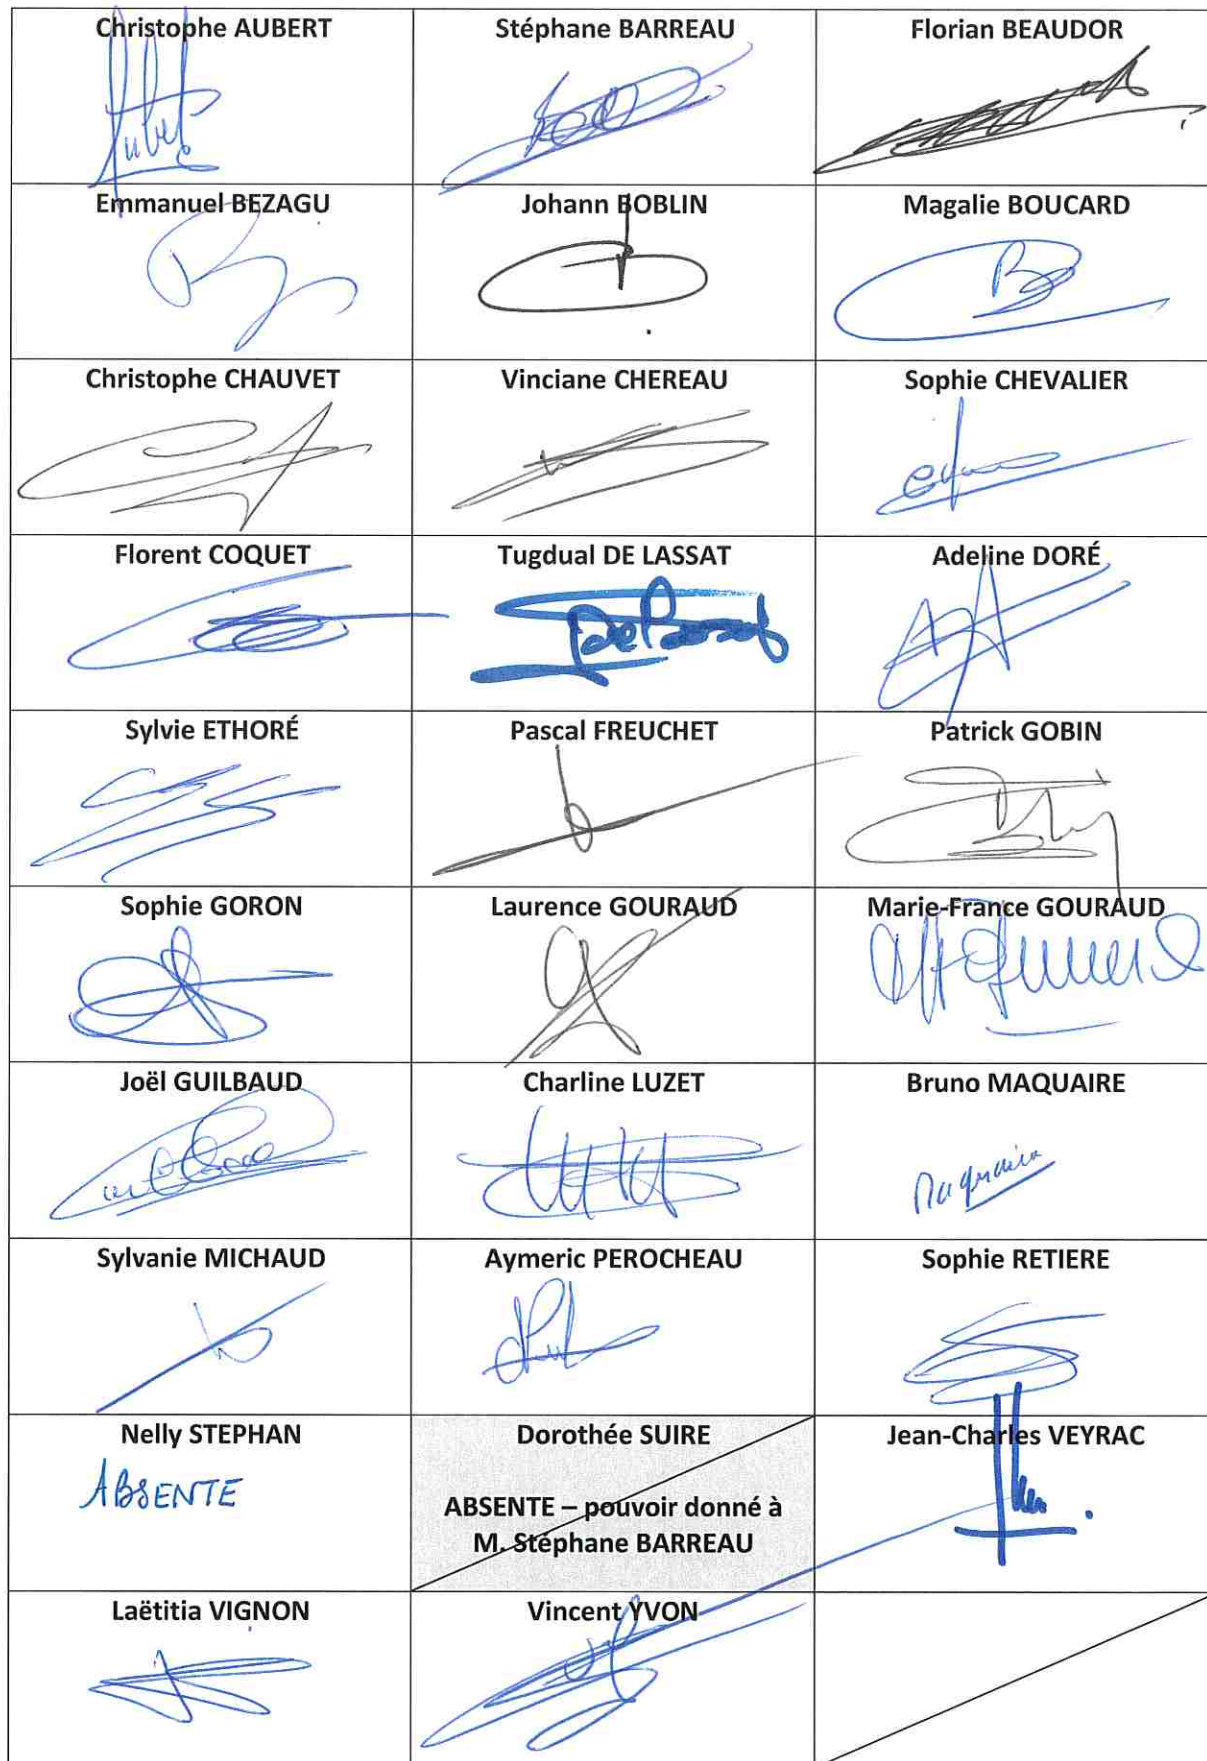 Christophe AUBERT
Stéphane BARREAU
Florian BEAUDOR
Aubert
Emmanuel BEZAGU
Johann BOBLIN
Magalie BOUCARD
Christophe CHAUVET
Vinciane CHEREAU
Sophie CHEVALIER
Florent COQUET
Tugdual DE LASSAT
Adeline DORÉ
Sylvie ETHORÉ
Pascal FREUCHET
Patrick GOBIN
Sophie GORON
Laurence GOURAUD
Marie-France GOURAUD
Joël GUILBAUD
Charline LUZET
Bruno MAQUAIRE
Maquaire
Sylvanie MICHAUD
Aymeric PEROCHEAU
Sophie RETIERE
Nelly STEPHAN
ABSENTE
Dorothée SUIRE
ABSENTE – pouvoir donné à
M. Stéphane BARREAU
Jean-Charles VEYRAC
Laëtitia VIGNON
Vincent YVON